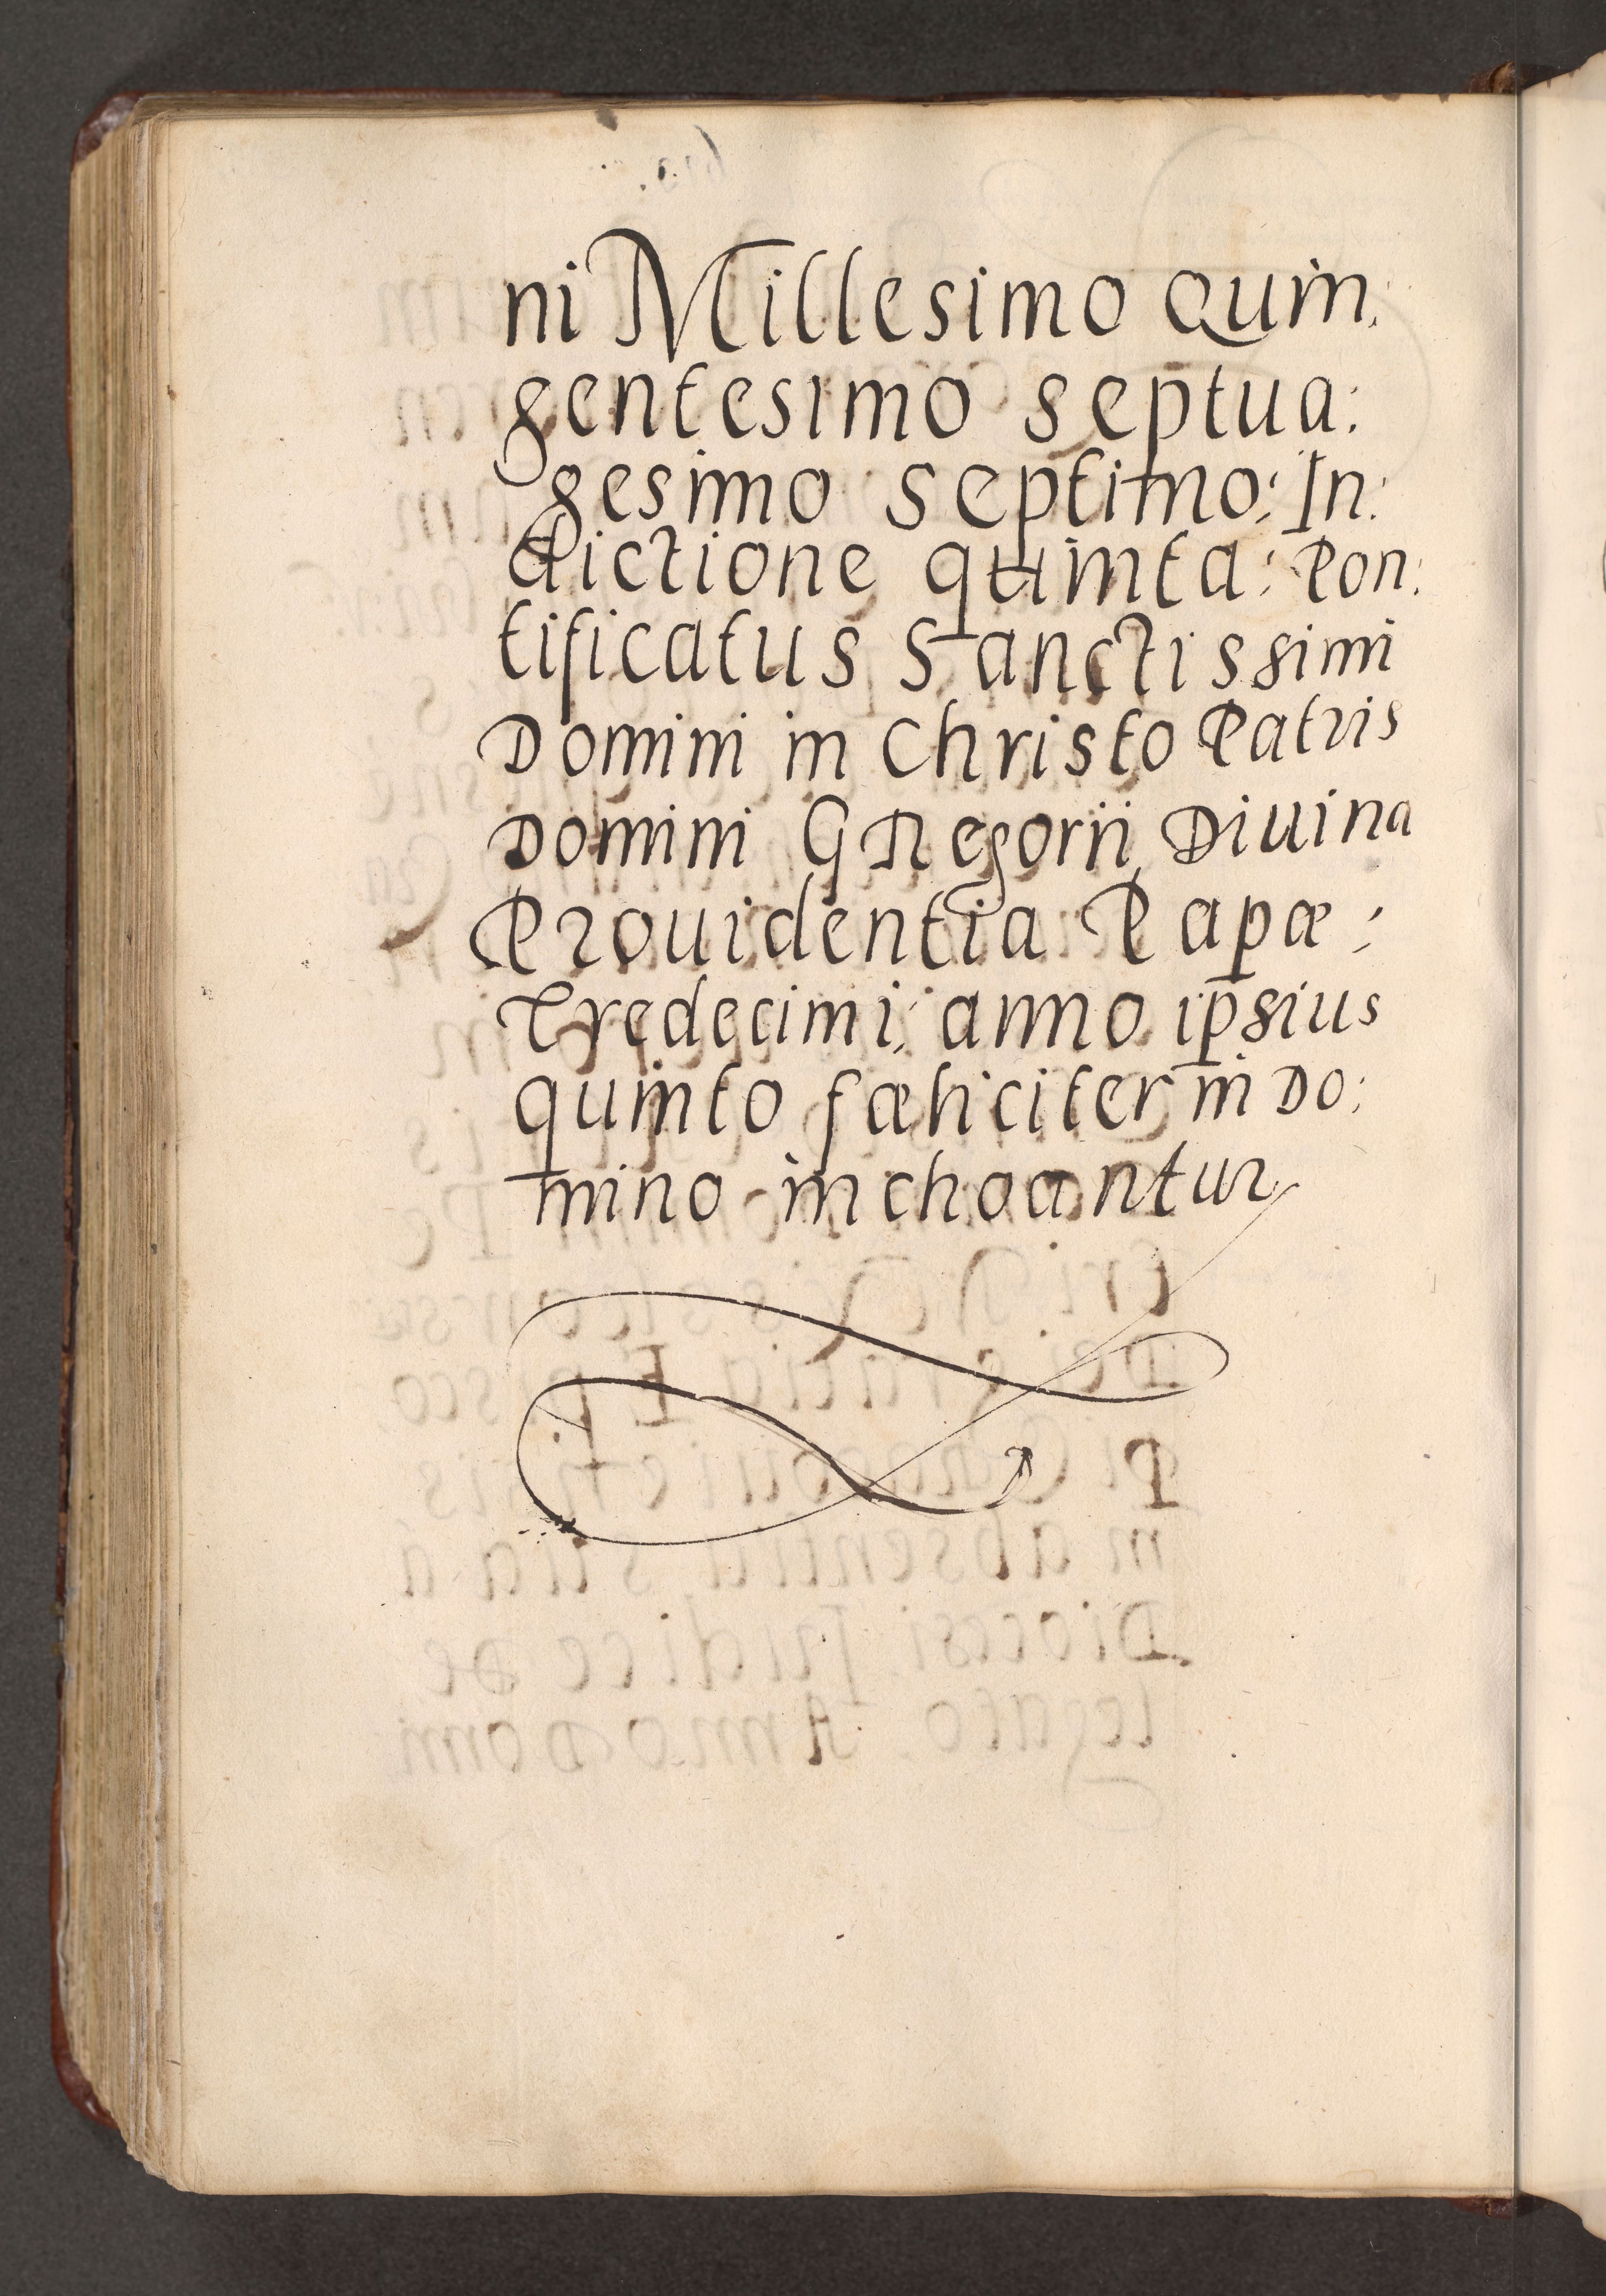 ni Millesimo Quin:
gentesimo septua:
gesimo septimo: In:
dictione quinta: Pon:
tificatus Sanctissimi
Domini in Christo Patris
Domini GRegorii Diuina
Prouidentia Papæ:
Tredecimi: anno ipsius
quinto fæliciter in Do:
mino inchoantur